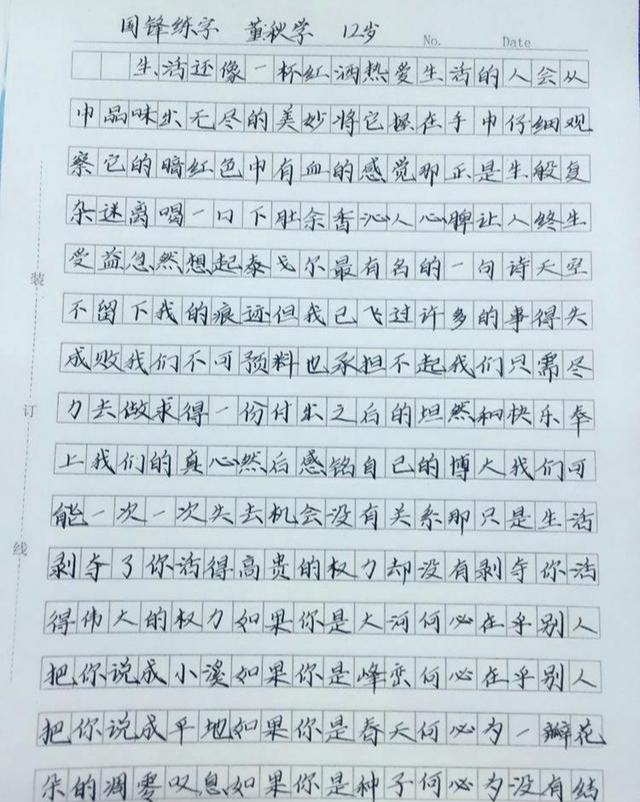 国锋练字 董秋学 12岁
No. Date
生活还像一杯红酒热爱生活的人会从
中品味出无尽的美妙将它握在手中仔细观
察它的暗红色中有血的感觉那正是生般复
杂迷离喝一口下肚余香沁人心脾让人终生
受益忽然想起泰戈尔最有名的一句诗天空
不留下我的痕迹但我已飞过许多的事得失
成败我们不可预料也承担不起我们只需尽
力去做求得一份付出之后的坦然和快乐奉
上我们的真心然后感铭自己的博大我们可
能一次一次失去机会没有关系那只是生活
剥夺了你活得高贵的权力却没有剥夺你活
得伟大的权力如果你是大河何必在乎别人
把你说成小溪如果你是峰峦何必在乎别人
把你说成平地如果你是春天何必为一瓣花
朵的凋零叹息如果你是种子何必为没有结
装
订
线